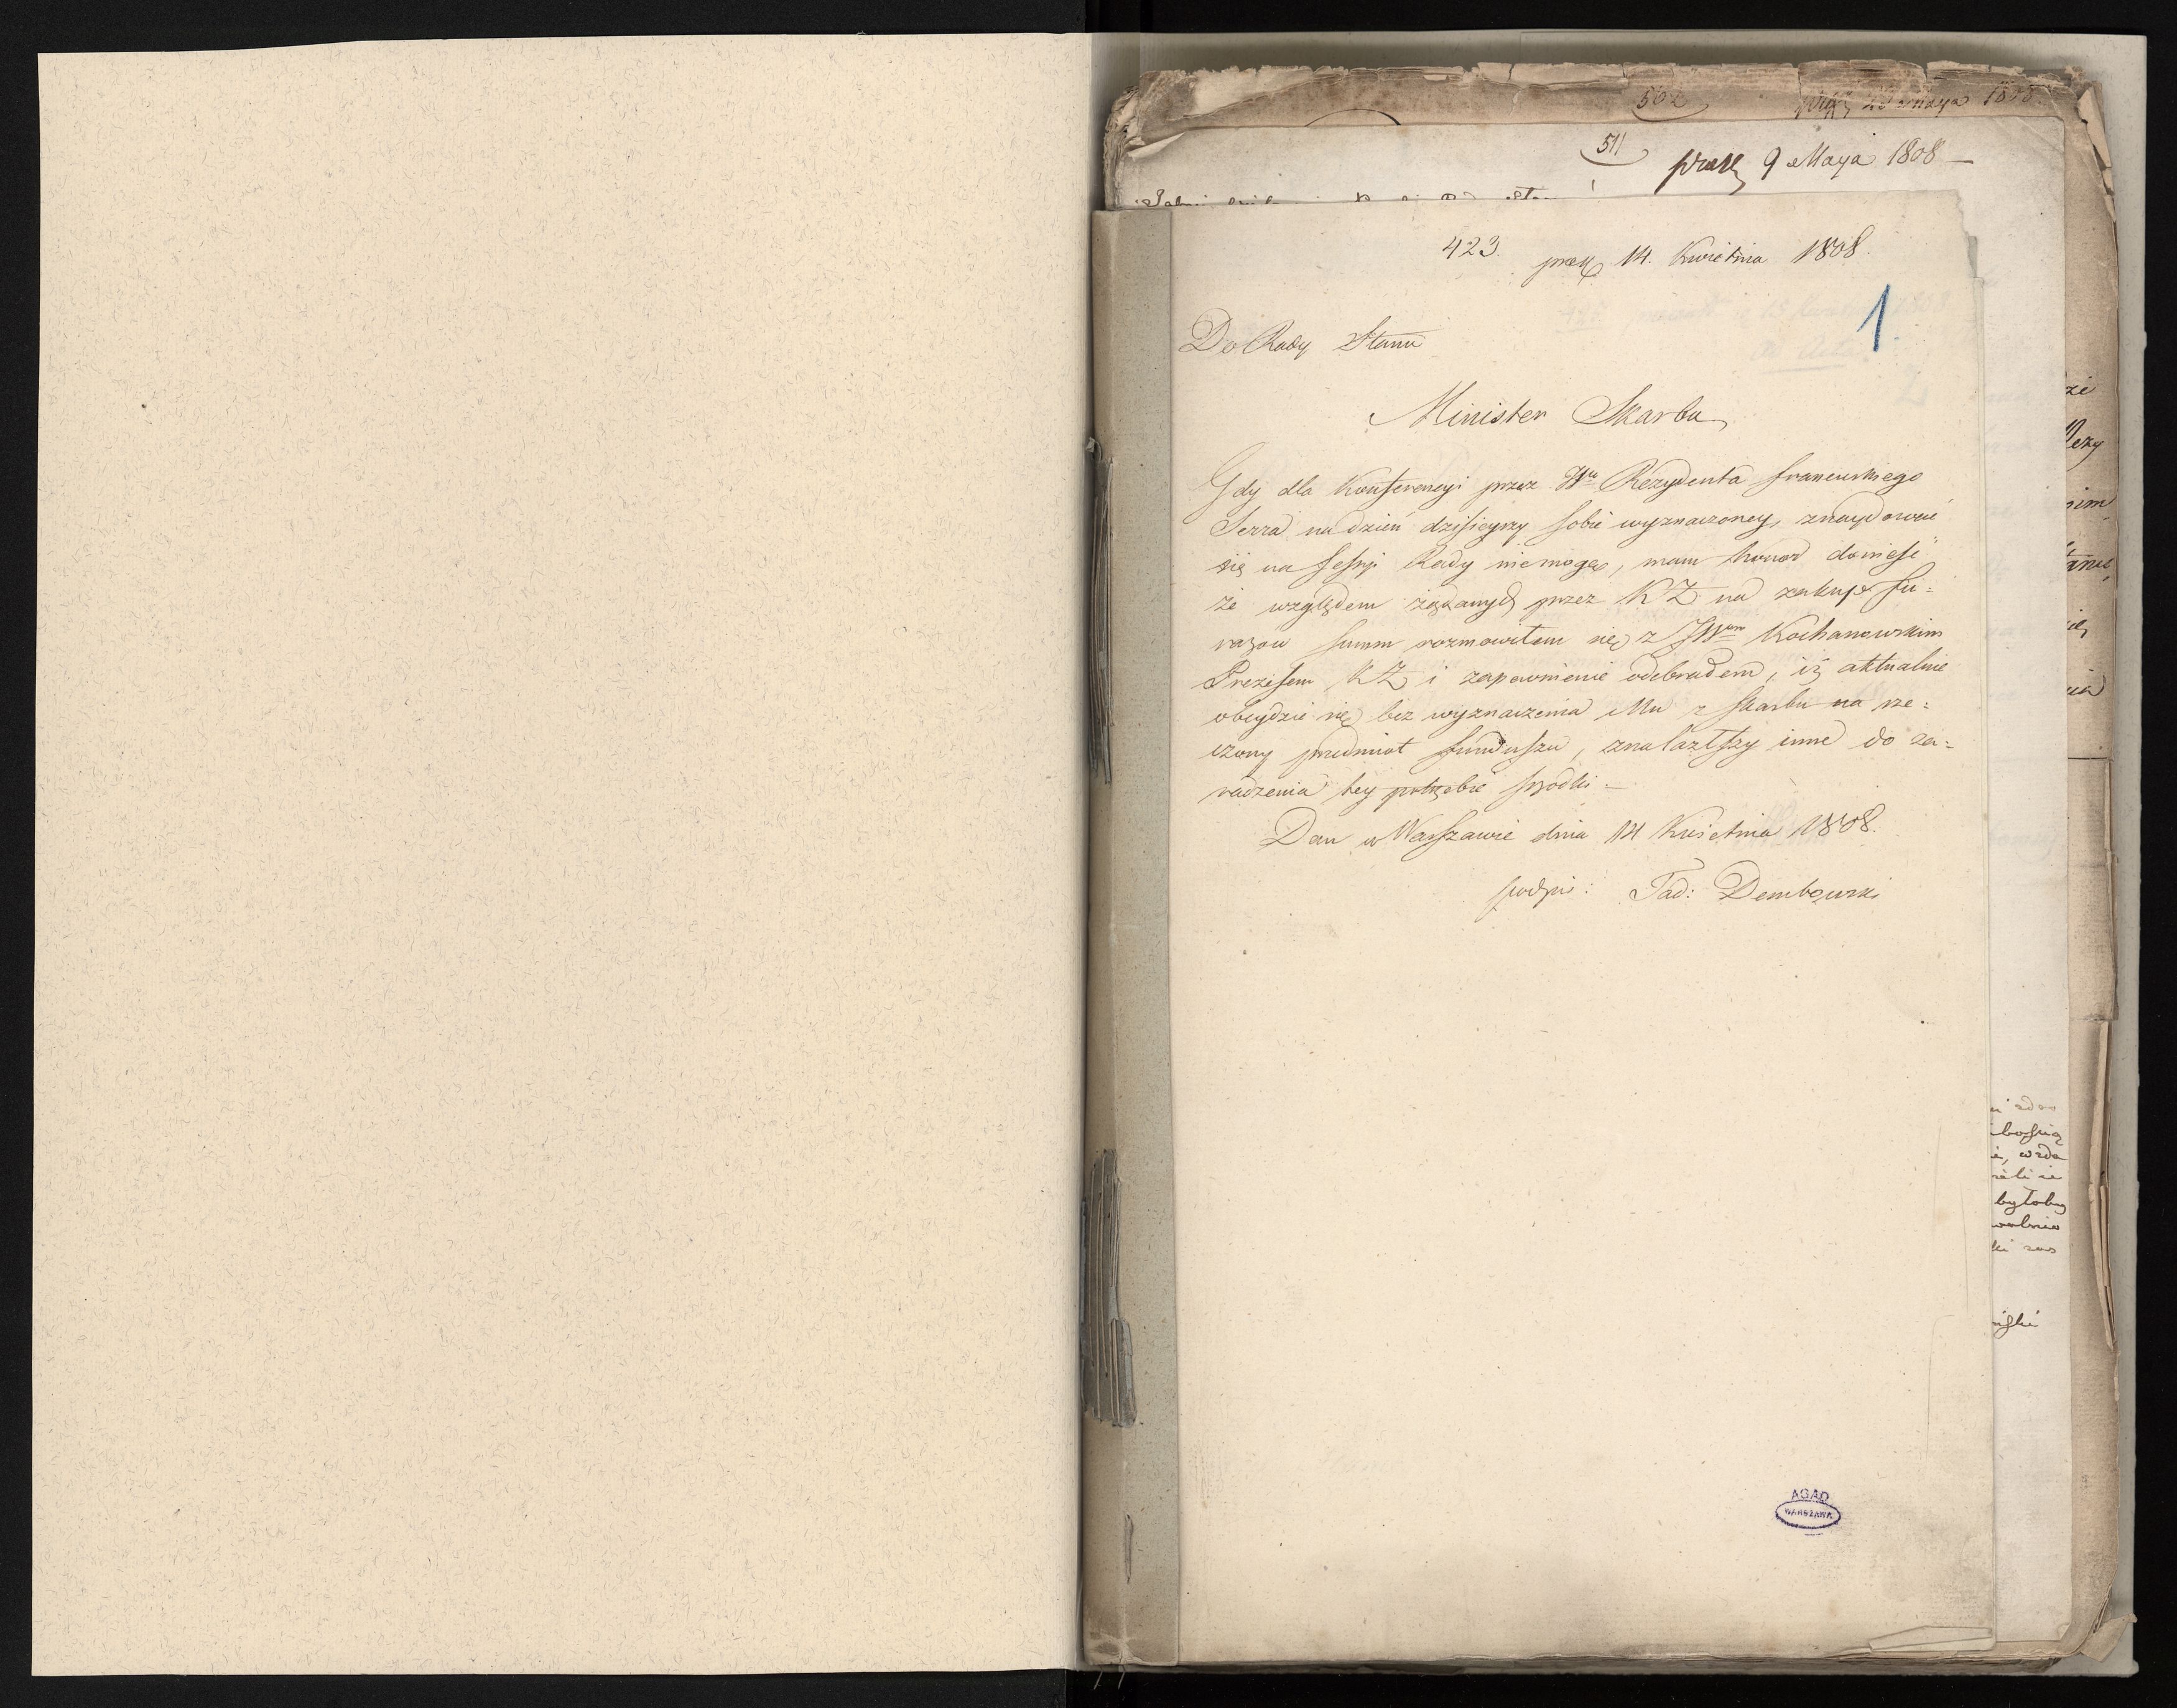 562 1808
511 praes 9 Maya 1808 —
423. praes 14. Kwietnia 1808.
1.
Do Rady Stanu
Minister Skarbu
Gdy dla Konferencyi przez JWo Rezydenta francuskiego
Serra na dzień dzisieyszy sobie wyznaczoney, znaydować
się na Sessyi Rady niemogę, mam honor donieść
że względem żądanych przez KZ na zakup fu=
razów summ rozmowiłem się z JWem Kochanowskim
Prezesem KZ i zapewnienie odebrałem, iż aktualnie
obeydzie się bez wyznaczenia Mu z Skarbu na rze=
czony przedmiot funduszu, znalazłszy inne do za=
radzenia tey potrzebie szrodki —
Dan w Warszawie dnia 14 Kwietnia 1808.
podpis: Tad: Dembowski
bytoby
AGAD
WARSZAWA